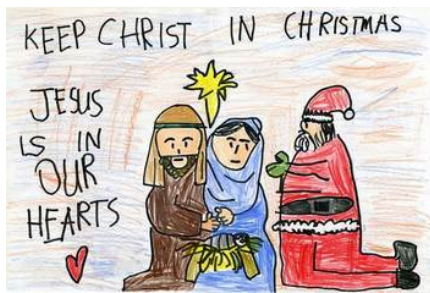 KEEP CHRIST IN CHRISTMAS
JESUS
IS IN
OUR
HEARTS